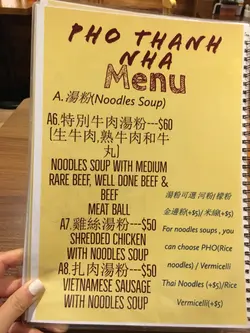 PHO THANH
NHA
Menu
A.湯粉(Noodles Soup)
A6.特別牛肉湯粉---$60
[生牛肉,熟牛肉和牛
丸]
NOODLES SOUP WITH MEDIUM
RARE BEEF, WELL DONE BEEF &
BEEF
MEAT BALL
A7.雞絲湯粉---$50
SHREDDED CHICKEN
WITH NOODLES SOUP
A8.扎肉湯粉---$50
VIETNAMESE SAUSAGE
WITH NOODLES SOUP
湯粉可選 河粉/檬粉
金邊粉(+$5)/米線(+$5)
For noodles soups , you
can choose PHO(Rice
noodles) / Vermicelli
Thai Noodles (+$5)/Rice
Vermicelli(+$5)